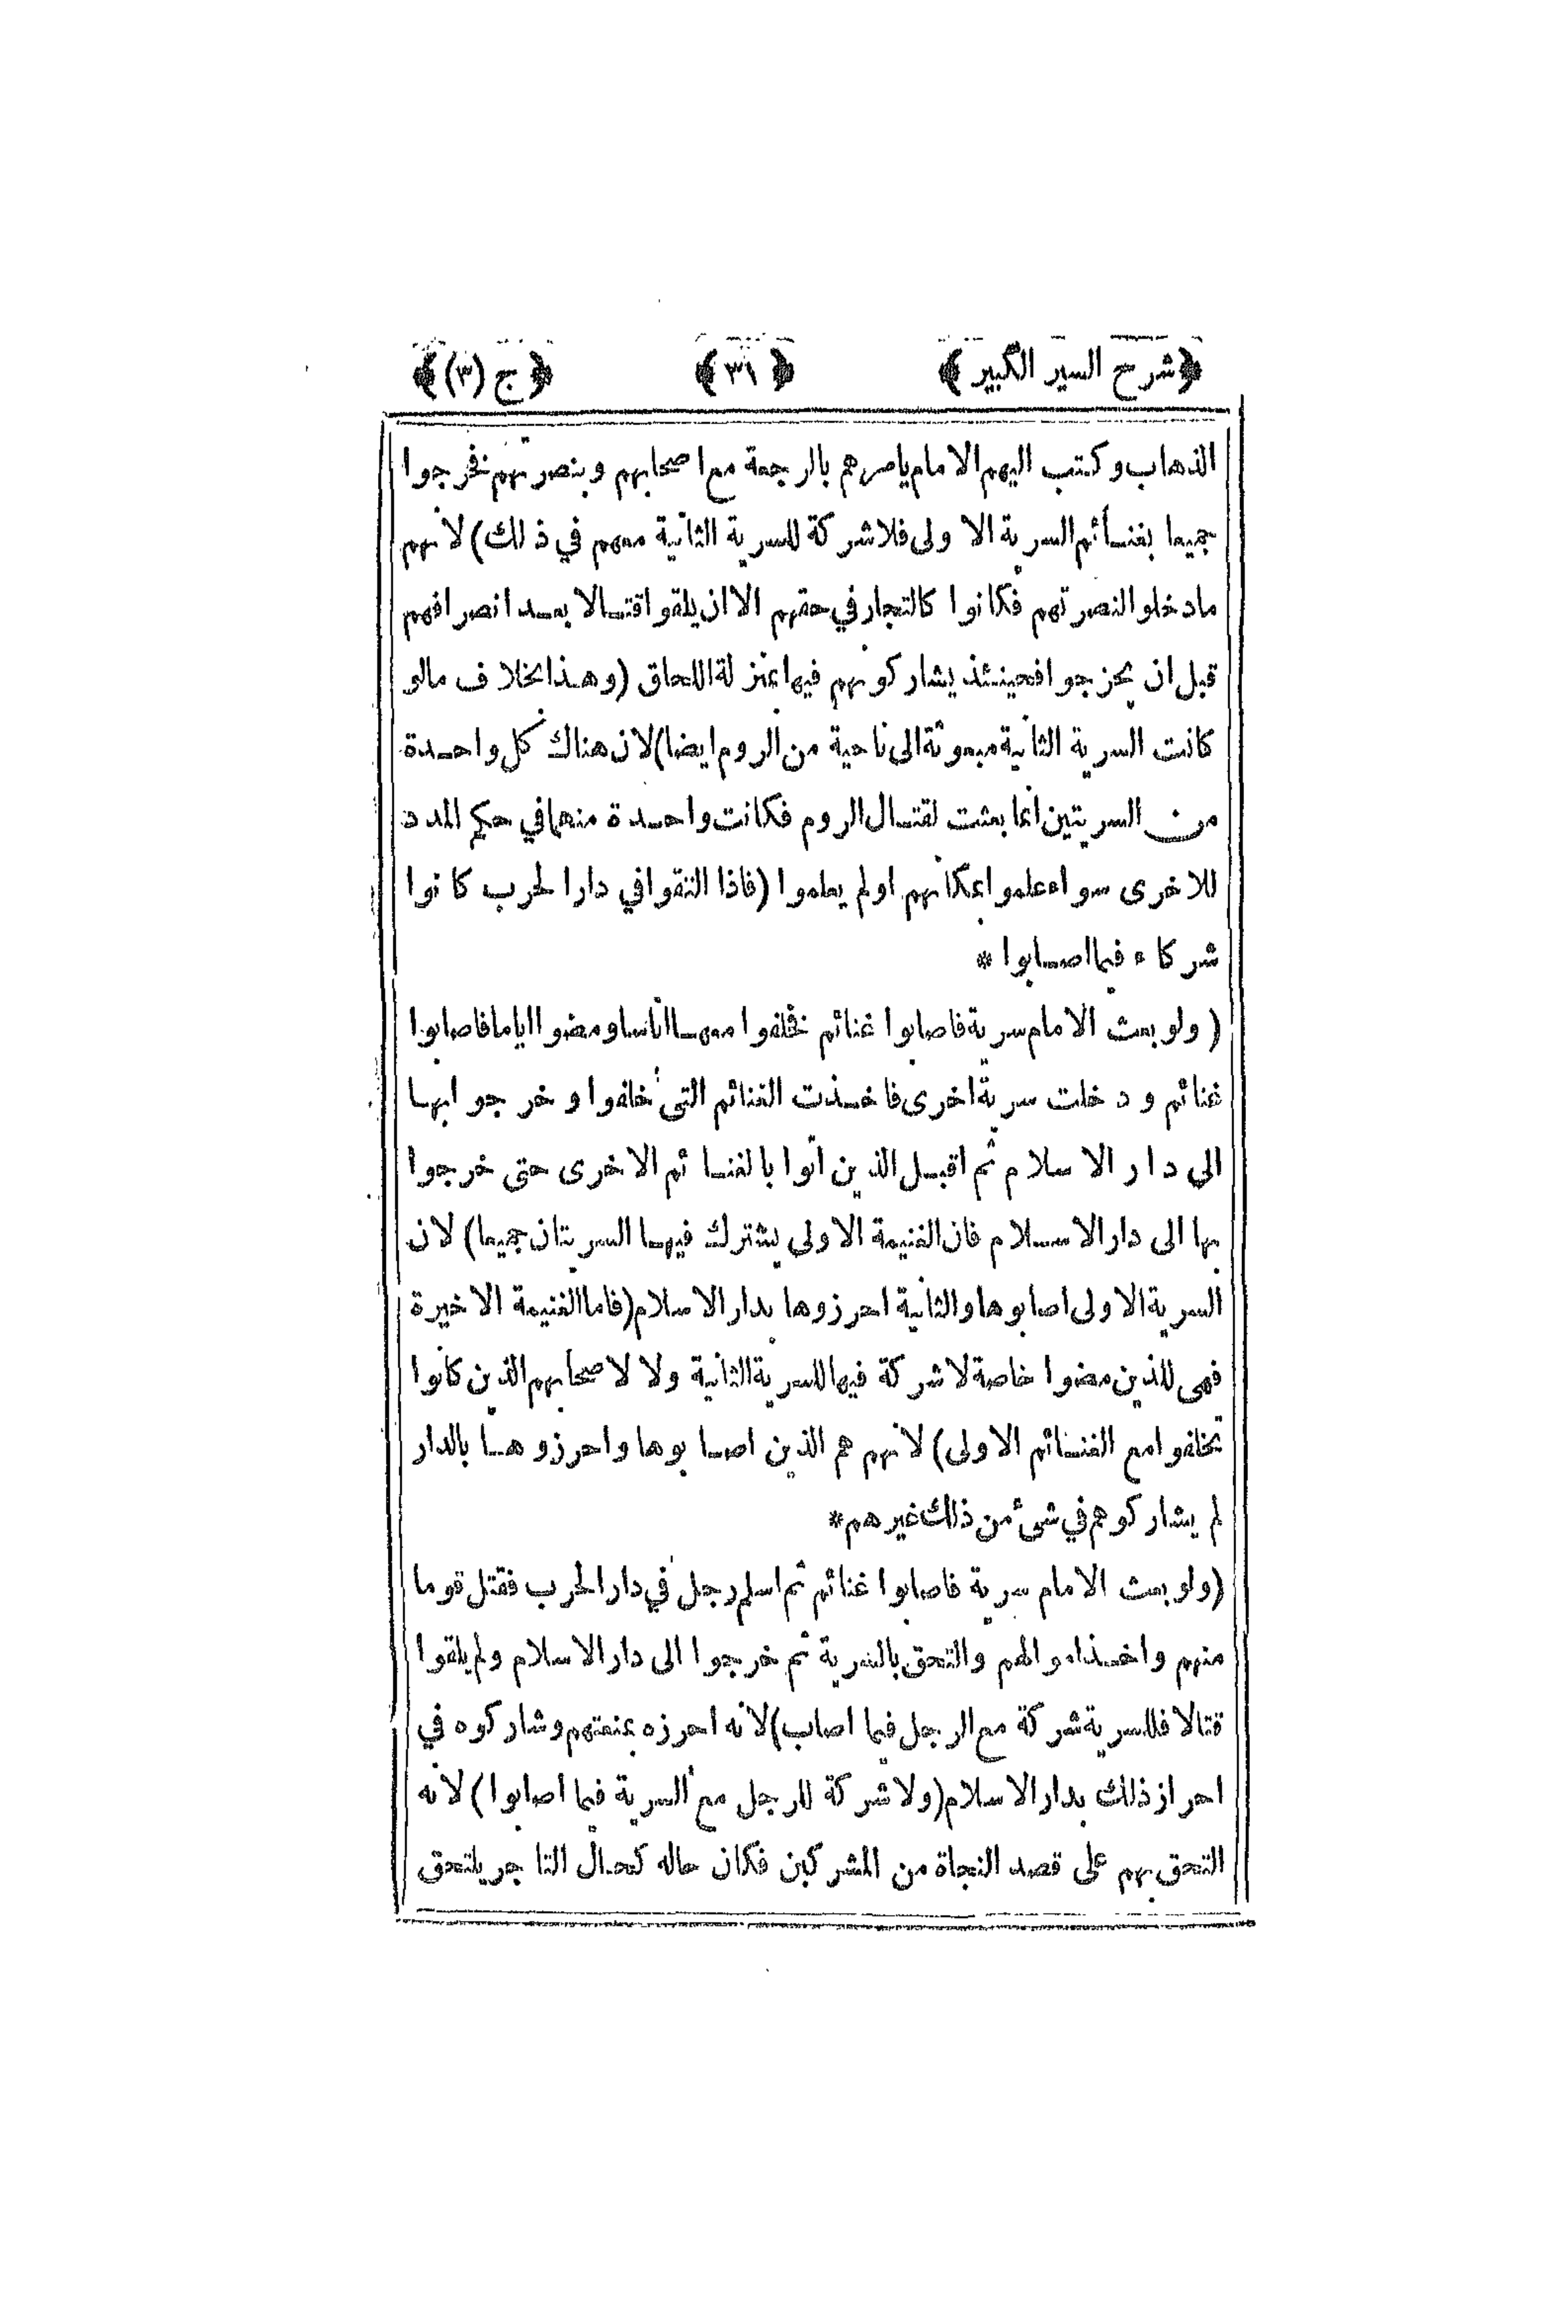 ﴿شرح السير الكبير﴾ ﴿٣١﴾ ﴿ج (٣)﴾
الذهاب وكتب اليهم الامام يامرهم بالرجعة مع اصحابهم وبنصرتهم فخرجوا
جميعا بغنائم السرية الاولى فلا شركة للسرية الثانية معهم في ذلك) لانهم
ما دخلوا لنصرتهم فكانوا كالتجار في حقهم الا ان يلقوا قتالا بعد انصرافهم
قبل ان يخرجوا فحينئذ يشاركونهم فيها بمنزلة اللحاق (وهذا بخلاف مالو
كانت السرية الثانية مبعوثة الى ناحية من الروم ايضا) لان هناك كل واحدة
من السريتين انما بعثت لقتال الروم فكانت واحدة منهما في حكم المدد
للاخرى سواء علموا بمكانهم اولم يعلموا (فاذا التقوا في دار الحرب كانوا
شركاء فيما اصابوا *
( ولو بعث الامام سرية فاصابوا غنائم فخلفوا معها اناسا ومضوا اياما فاصابوا
غنائم ودخلت سرية اخرى فاخذت الغنائم التى خلفوا وخرجوا بها
الى دار الاسلام ثم اقبل الذين اتوا بالغنائم الاخرى حتى خرجوا
بها الى دار الاسلام فان الغنيمة الاولى يشترك فيها السريتان جميعا) لان
السرية الاولى اصابوها والثانية احرزوها بدار الاسلام (فاما الغنيمة الاخيرة
فهى للذين مضوا خاصة لا شركة فيها للسرية الثانية ولا لاصحابهم الذين كانوا
تخلفوا مع الغنائم الاولى) لانهم هم الذين اصابوها واحرزوها بالدار
لم يشاركوهم في شئ من ذلك غيرهم*
(ولو بعث الامام سرية فاصابوا غنائم ثم اسلم رجل في دار الحرب فقتل قوما
منهم واخذ اموالهم والتحق بالسرية ثم خرجوا الى دار الاسلام ولم يلقوا
قتالا فللسرية شركة مع الرجل فيما اصاب) لانه احرزه بمنعتهم وشاركوه في
احراز ذلك بدار الاسلام (ولا شركة للرجل مع السرية فيما اصابوا) لانه
التحق بهم على قصد النجاة من المشركين فكان حاله كحال التاجر يلتحق